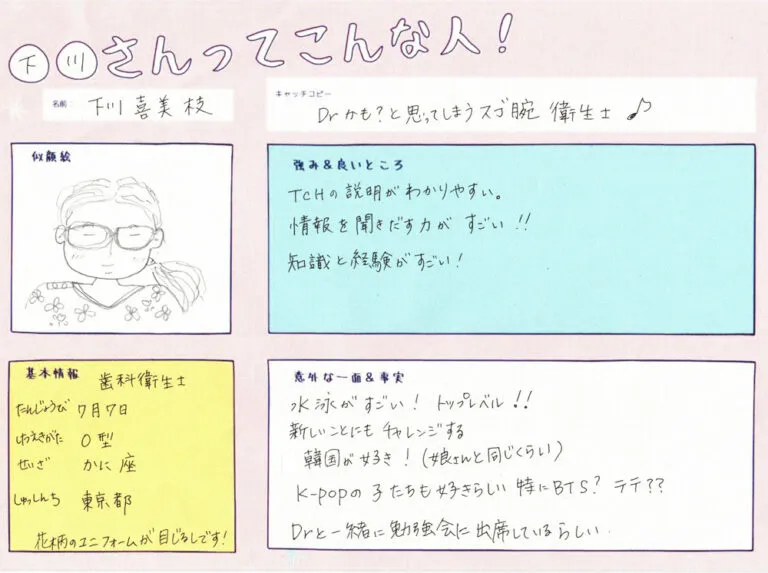 下川さんってこんな人!
名前: 下川 喜美枝
キャッチコピー
Drかも?と思ってしまうスゴ腕 衛生士♪
似顔絵
強み&良いところ
TCHの説明がわかりやすい。
情報を聞きだす力が すごい!!
知識と経験がすごい!
基本情報 歯科衛生士
たんじょうび 7月7日
けつえきがた O型
せいざ かに座
しゅっしんち 東京都
花柄のユニフォームが目じるしです!
意外な一面&事実
水泳がすごい! トップレベル!!
新しいことにもチャレンジする
韓国が好き!(娘さんと同じくらい)
K-popの子たちも好きらしい 特にBTS? テテ??
Drと一緒に勉強会に出席しているらしい.